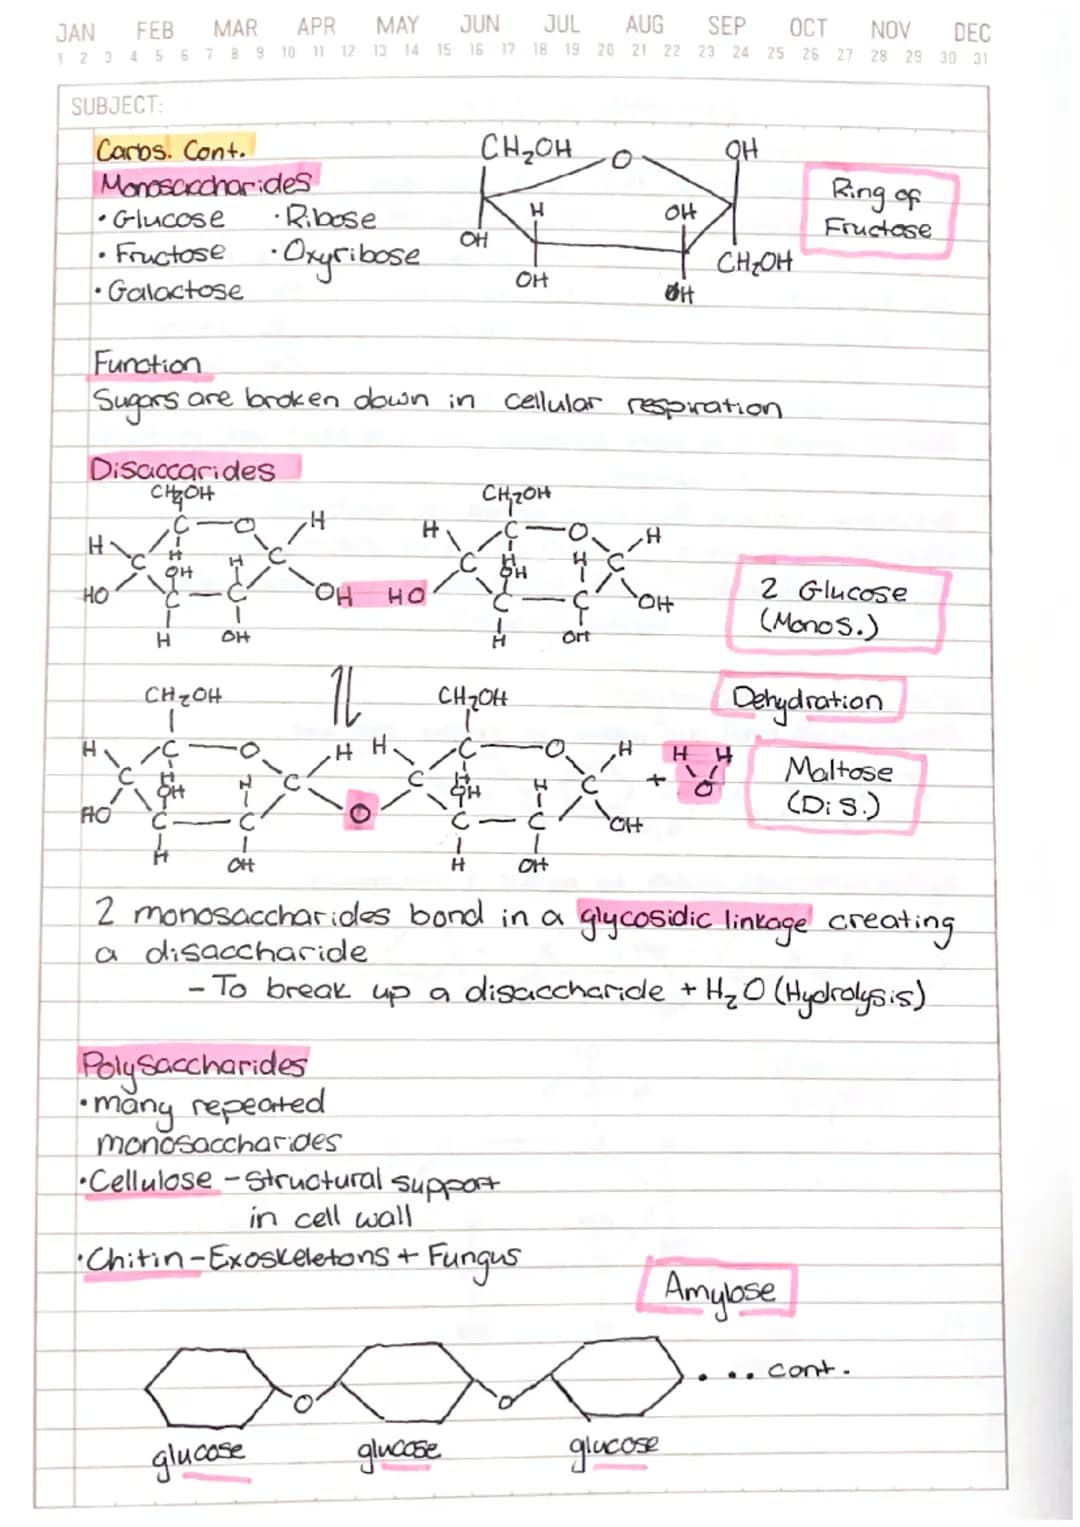 JAN FEB MAR APR MAY JUN JUL AUG SEP OCT NOV DEC
1 2 3 4 5 6 7 8 9 10 11 12 13 14 15 16 17 18 19 20 21 22 23 24 25 26 27 28 29 30 31
SUBJECT:
Carbs. Cont.
Monosaccharides
• Glucose • Ribose
• Fructose • Oxyribose
• Galactose
CH₂OH O OH
H OH
OH CH₂OH
OH OH
Ring of
Fructose
Function
Sugars are broken down in cellular respiration
Disaccarides
CH₂OH CH₂OH
C O H H C O H
H C H H C C H H C
OH OH
HO C C OH HO C C OH
H OH H OH
2 Glucose
(Mono S.)
Dehydration
CH₂OH CH₂OH
H C O H H C O H + H H
C H H C C H H C O
OH OH
HO C C O C C OH
H OH H OH
Maltose
(Di S.)
2 monosaccharides bond in a glycosidic linkage creating
a disaccharide
- To break up a disaccharide + H₂O (Hydrolysis)
Polysaccharides
• many repeated
monosaccharides
• Cellulose - Structural support
in cell wall
• Chitin - Exoskeletons + Fungus
Amylose
O O ... cont.
glucose glucose glucose